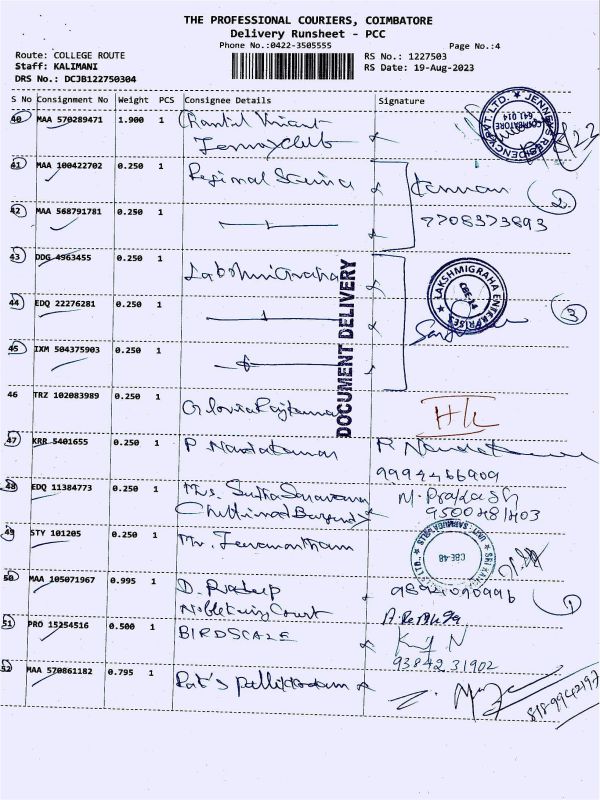 THE PROFESSIONAL COURIERS, COIMBATORE
Delivery Runsheet - PCC
Phone No.:0422-3505555
Page No.:4
Route: COLLEGE ROUTE
Staff: KALIMANI
DRS No.: DCJB122750304
RS No.: 1227503
RS Date: 19-Aug-2023
S No Consignment No Weight PCS Consignee Details Signature
40 MAA 570289471 1.900 1
JENNEYS RESIDENCY PVT. LTD.
COIMBATORE 641 014
41 MAA 100422702 0.250 1 Regional Science Kannan
42 MAA 568791781 0.250 1 7708373893 2
43 DDG 4963455 0.250 1 Lakshmi Graha
LAKSHMIGRAHA ENTERPRISES
CBE-14
44 EDQ 22276281 0.250 1 3
45 IXM 504375903 0.250 1
DOCUMENT DELIVERY
46 TRZ 102083989 0.250 1 Gloria Rajkumar
47 KRR 5401655 0.250 1 P Nandakumar P Nandakumar
9994466909
48 EDQ 11384773 0.250 1 M. Prakash
9500481403
49 STY 101205 0.250 1 Mr. Jeevanantham
CBE-48
50 MAA 105071967 0.995 1 D. Pradeep 9894090996 1
Court
51 PRO 15254516 0.500 1 BIRDSCALE
9384231902
52 MAA 570861182 0.795 1
8189942197